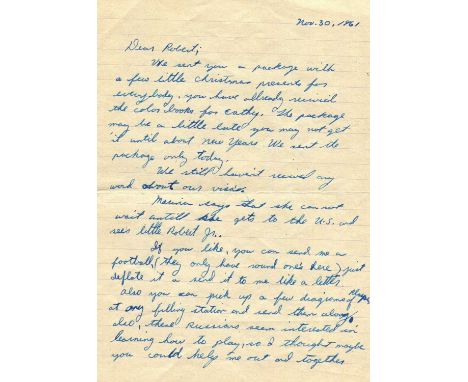 Nov. 30, 1961
Dear Robert;
We sent you a package with
a few little Christmas presents for
everybody. you have already recived
the color books for Cathy. The package
may be a little late you may not get
it until about new Years We sent the
package only today.
We still haven't recived any
word about our visas.
Marina says that she can not
wait untill she gets to the U.S. and
sees little Robert Jr..
If you like, you can send me a
football, (they only have round one's here) just
deflate it a send it to me like a letter.
also you can pick up a few diagrams of plays
at any filling station and send them along
also, these Russians seem interested in
learning how to play, so I thought maybe
you could help me out and together